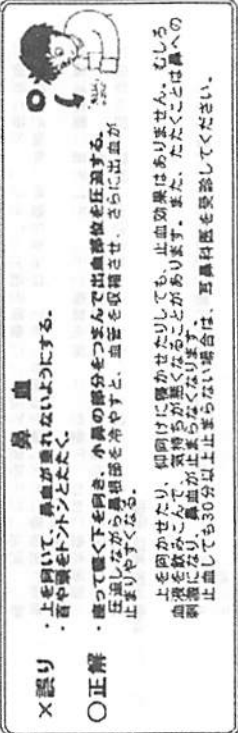 鼻 血
×誤り ・上を向いて、鼻血が垂れないようにする。
・首や頭をトントンとたたく。
○正解 ・座って軽く下を向き、小鼻の部分をつまんで出血部位を圧迫する。
圧迫しながら鼻根部を冷やすと、血管を収縮させ、さらに出血が
止まりやすくなる。
上を向かせたり、仰向けに寝かせたりしても、止血効果はありません。むしろ
血液を飲みこんで、気持ちが悪くなることがあります。また、たたくことは鼻への
刺激になり、鼻血が止まらなくなります。
止血しても30分以上止まらない場合は、耳鼻科医を受診してください。